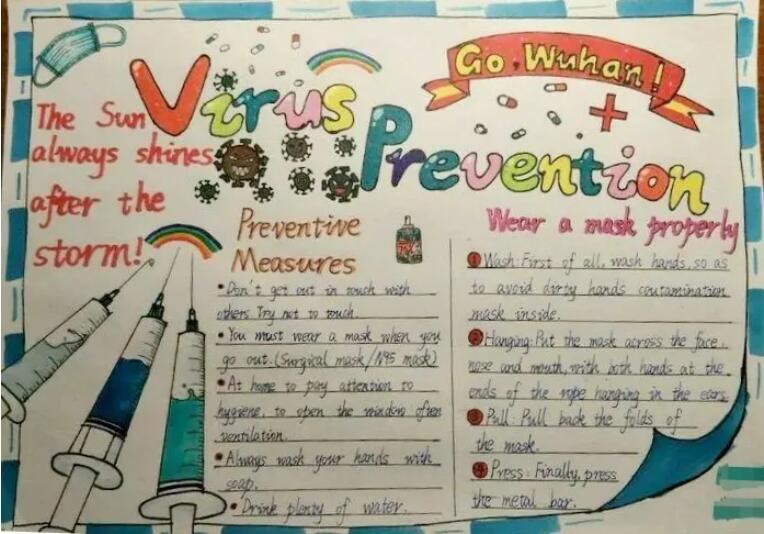 Go Wuhan!
Virus
Prevention
The Sun
always shines
after the
storm!
Preventive
Measures
• Don't get out in touch with
others. Try not to touch.
• You must wear a mask when you
go out. (Surgical mask/N95 mask)
• At home to pay attention to
hygiene, to open the window often
ventilation.
• Always wash your hands with
soap.
• Drink plenty of water.
Wear a mask properly
1 Wash: First of all, wash hands, so as
to avoid dirty hands coutamination
mask inside.
2 Hanging: Put the mask across the face,
nose and mouth, with both hands at the
ends of the rope hanging in the ears.
3 Pull: Pull back the folds of
the mask.
4 Press: Finally, press
the metal bar.